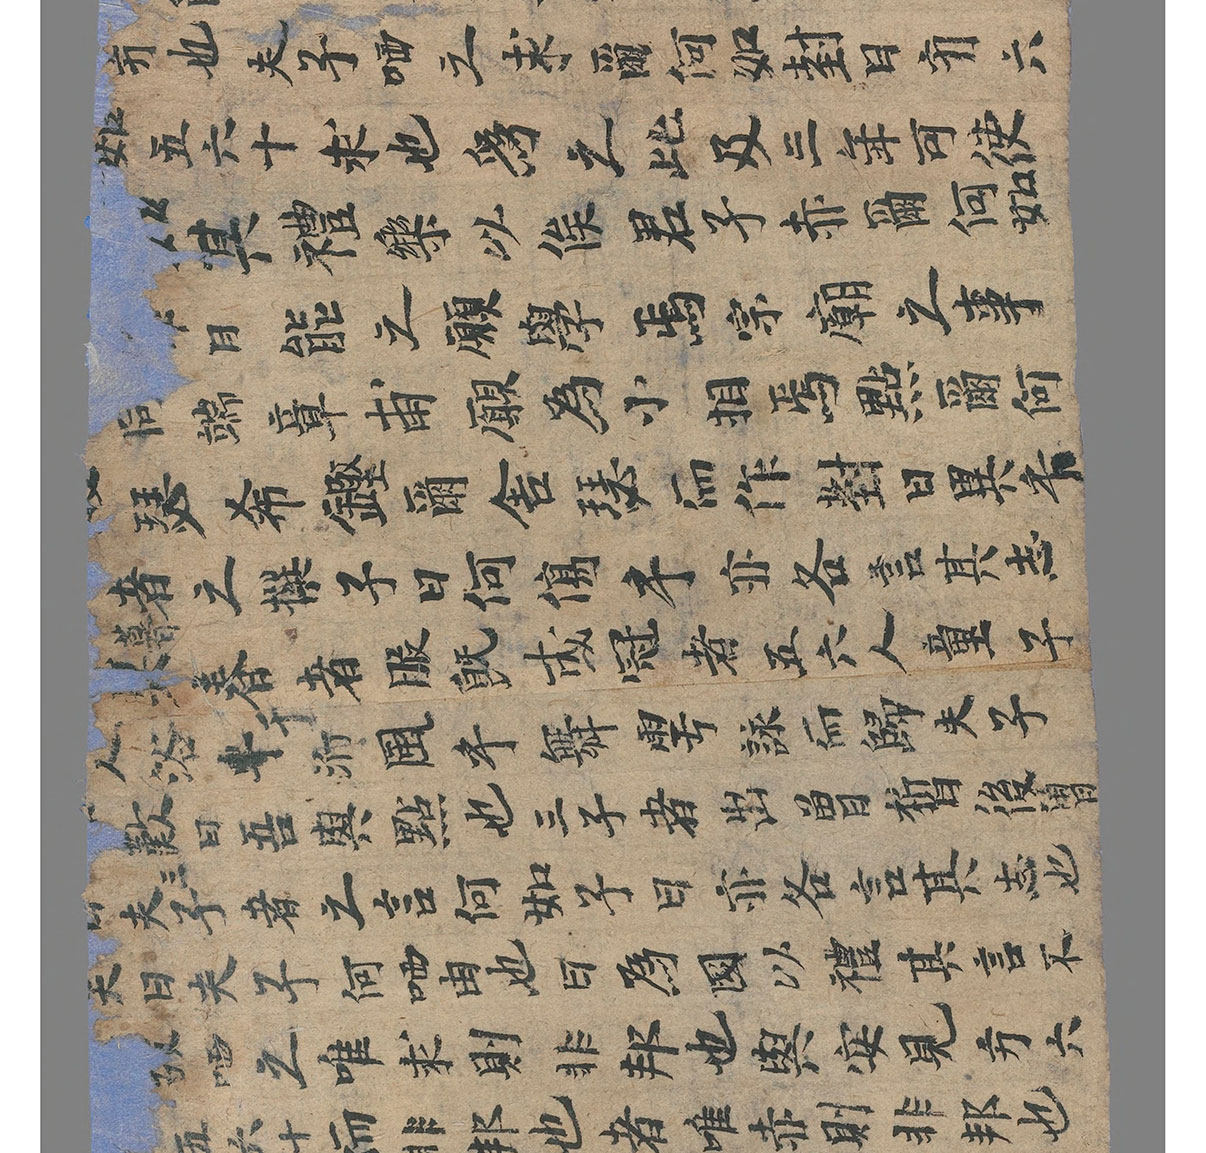 方也夫子哂之求爾何如對曰方六
如五六十求也為之比及三年可使
其禮樂以俟君子赤爾何如
曰能之願學焉宗廟之事
同端章甫願為小相焉點爾何
瑟希鏗爾舍瑟而作對曰異乎
者之撰子曰何傷乎亦各言其志
暮春者服既成冠者五六人童子
人浴乎沂風乎舞雩詠而歸夫子
歎曰吾與點也三子者出曾皙後曾
夫三子者之言何如子曰亦各言其志也
矣曰夫子何哂由也曰為國以禮其言不
哂之唯求則非邦也與安見方六
五六十而非邦也者唯赤則非邦也